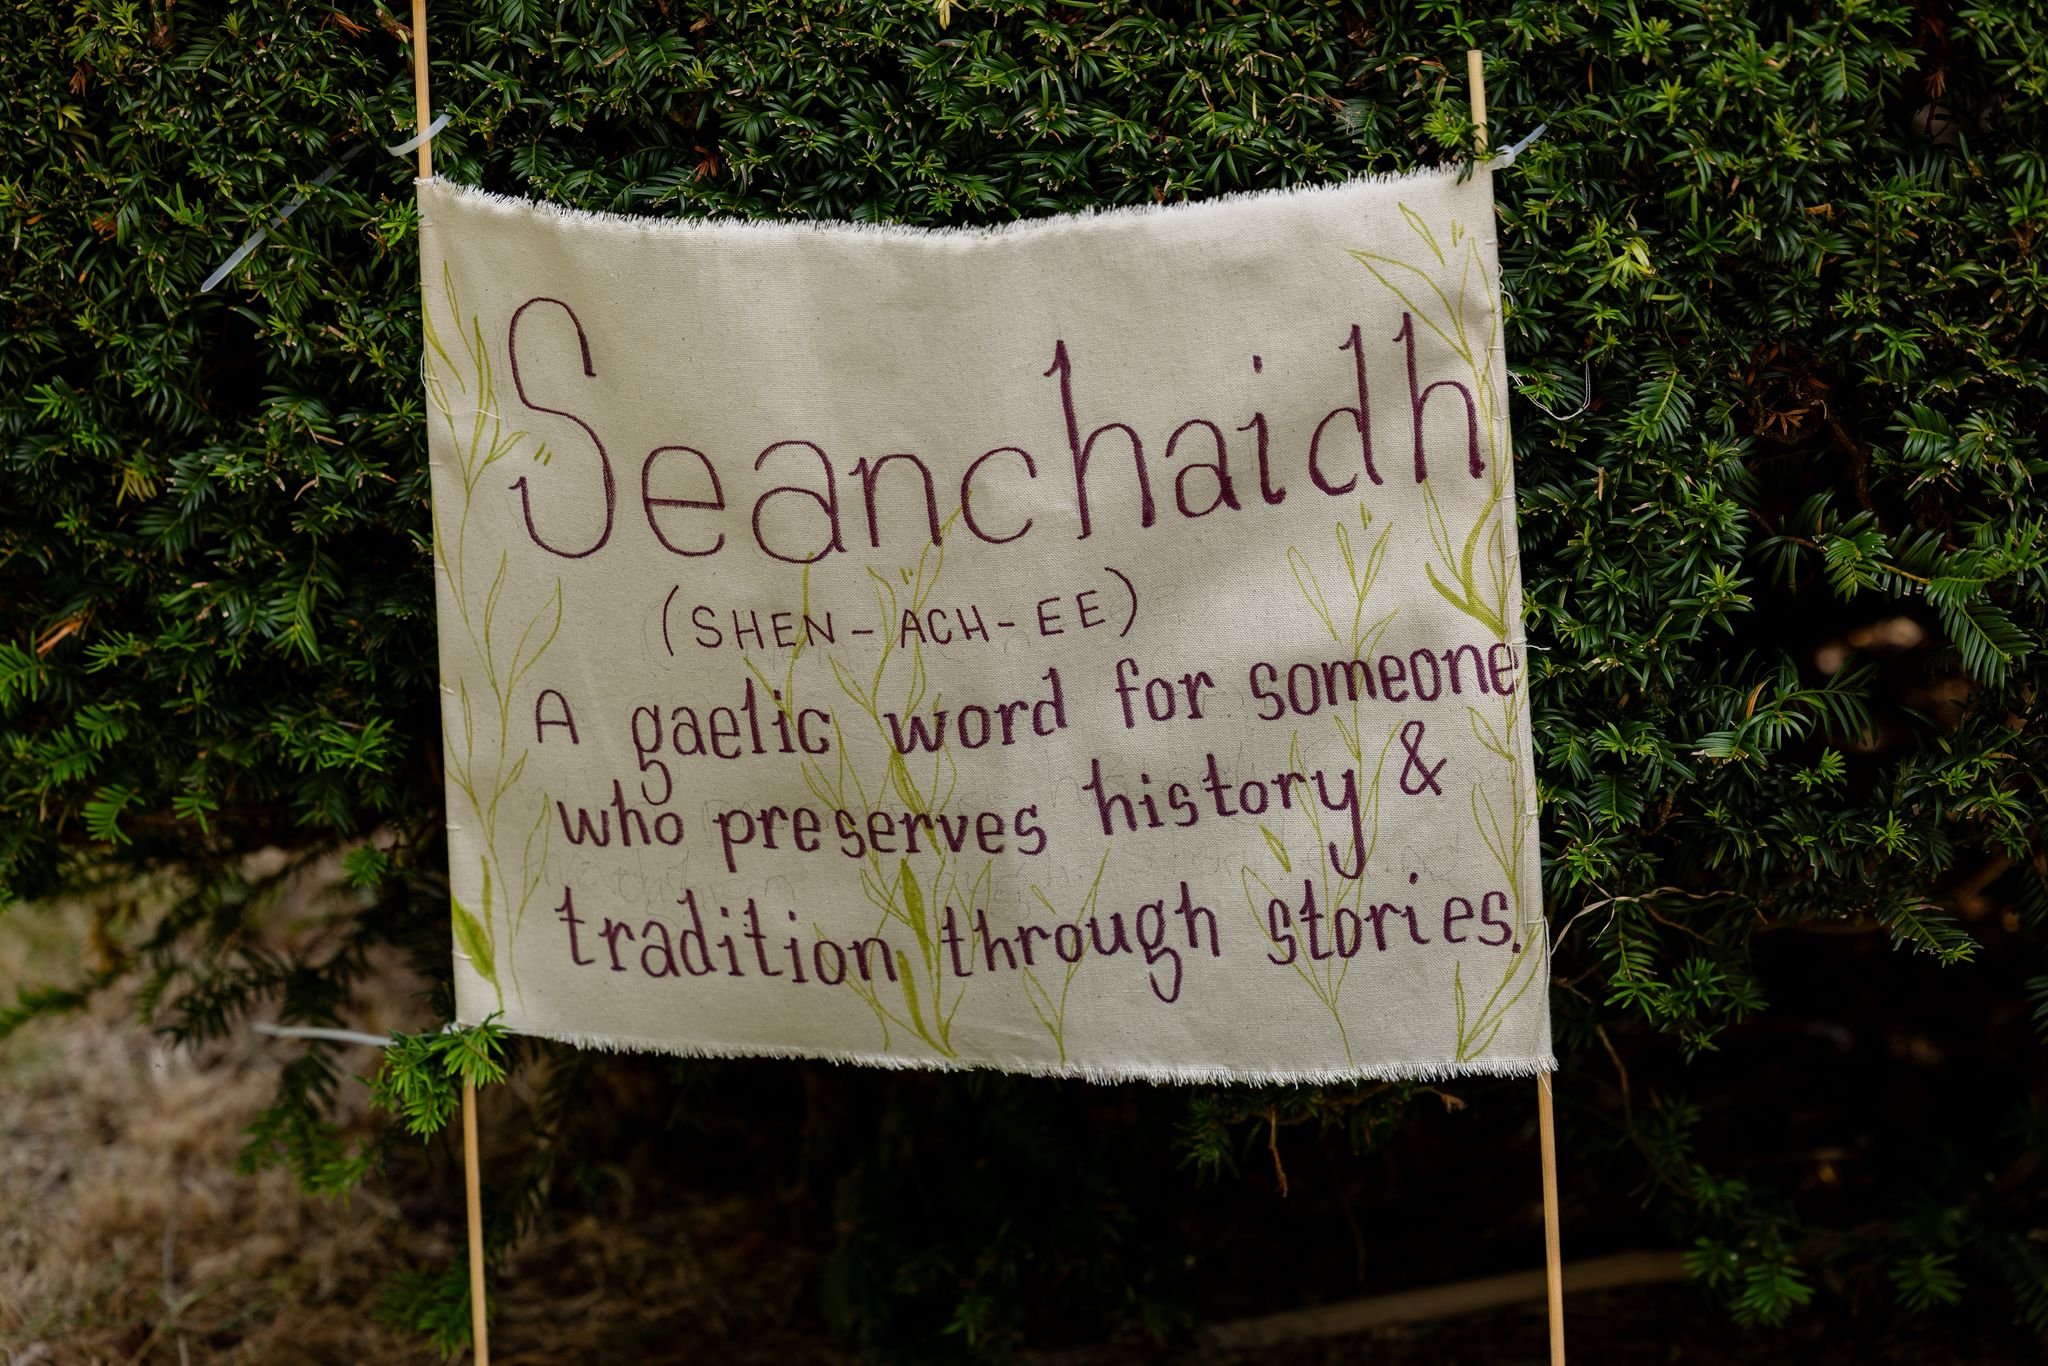 Seanchaidh
(SHEN-ACH-EE)
A gaelic word for someone
who preserves history &
tradition through stories.